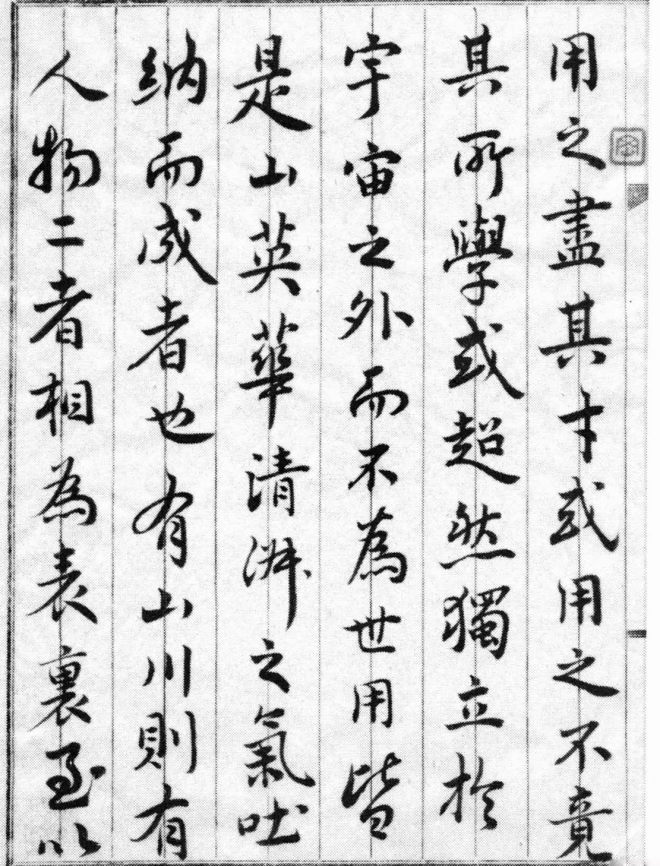 用之盡其才或用之不竟
其所學或超然獨立於
宇宙之外而不為世用皆
是山英華清淑之氣吐
納而成者也有山川則有
人物二者相為表裏至以